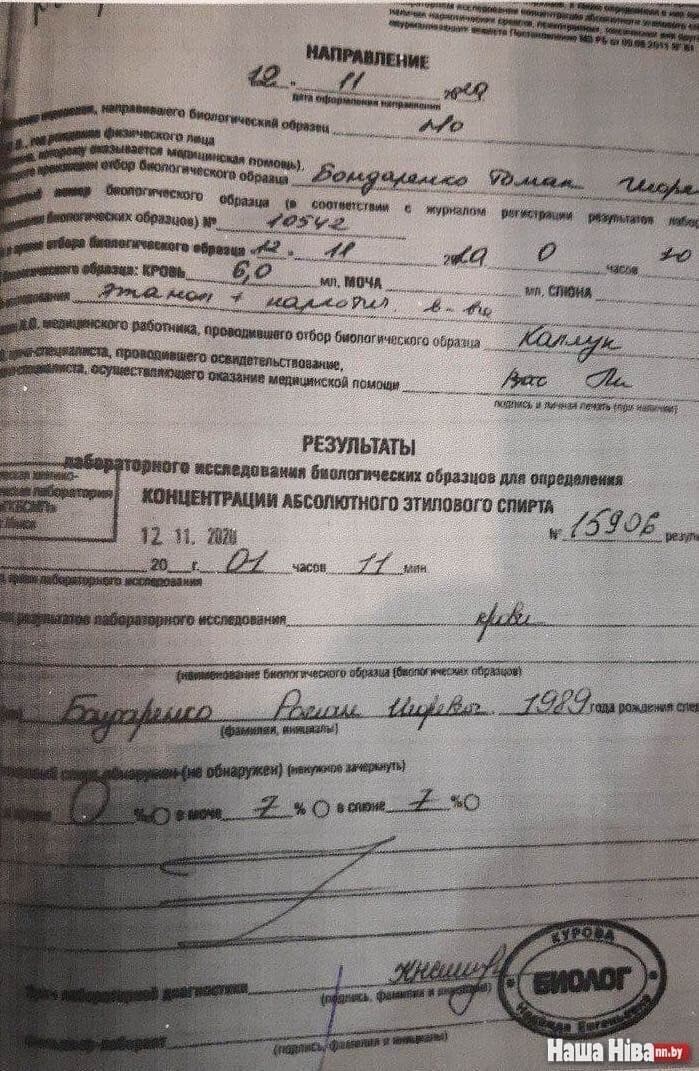 наличия наркотических средств, психотропных,
Постановление МЗ РБ от 05.08.2011 № 81
НАПРАВЛЕНИЕ
12. 11 2020
дата оформления направления
направившего биологический образец МО
год рождения физического лица
которому оказывается медицинская помощь),
отбор биологического образца Бондаренко Роман Игоре
номер биологического образца (в соответствии с журналом регистрации результатов
биологических образцов) № 10542
и время отбора биологического образца 12. 11 2020 0 часов 30
биологического образца: КРОВЬ 6,0 мл, МОЧА мл, СЛЮНА
этанол + наркотич. в-ва
И.О. медицинского работника, проводившего отбор биологического образца Каплун
врача-специалиста, проводившего освидетельствование,
осуществляющего оказание медицинской помощи
подпись и личная печать (при наличии)
РЕЗУЛЬТАТЫ
лабораторного исследования биологических образцов для определения
КОНЦЕНТРАЦИИ АБСОЛЮТНОГО ЭТИЛОВОГО СПИРТА
лаборатория
г. Минск
12 11. 2020
№ 15906
20 г. 01 часов 11 мин.
время лабораторного исследования
результатов лабораторного исследования крови
(наименование биологического образца (биологических образцов)
Бондаренко Роман Игоревич 1989 года рождения
(фамилия, инициалы)
спирт обнаружен (не обнаружен) (ненужное зачеркнуть)
0 %О в моче Z %О в слюне Z %О
КУРОВА
БИОЛОГ
Надежда Евгеньевна
Врач лабораторной диагностики
(подпись, фамилия и инициалы)
Фельдшер-лаборант
(подпись, фамилия и инициалы)
Наша Ніва nn.by